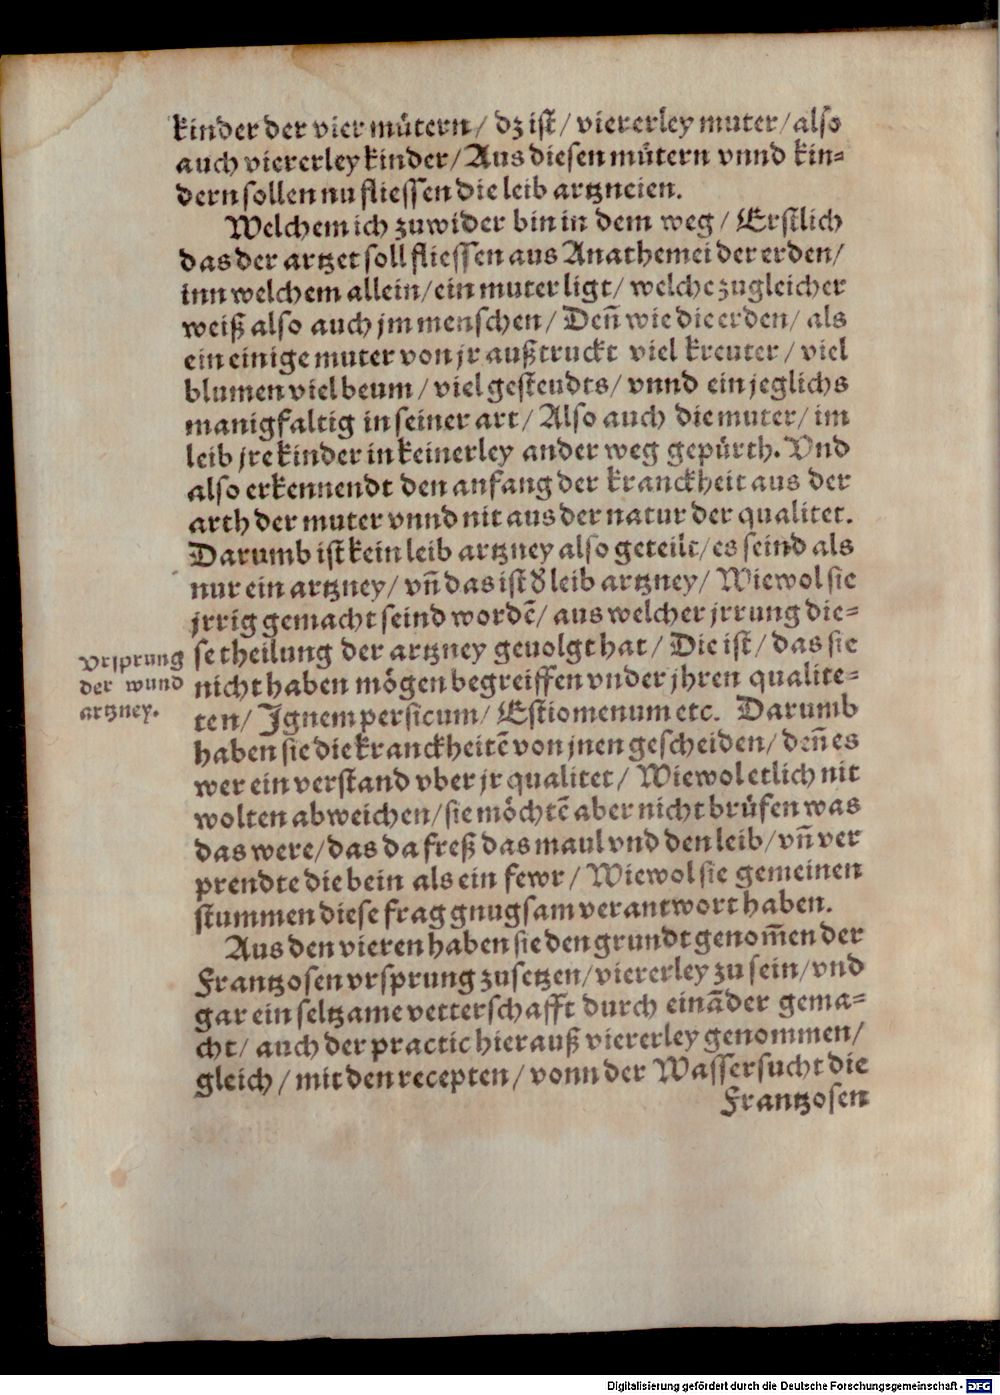 kinder der vier muͤtern/ dz ist/ viererley muter/ also
auch viererley kinder/ Aus diesen muͤtern vnnd kin⸗
dern sollen nu fliessen die leib artzneien.
Welchem ich zuwider bin in dem weg/ Erstlich
das der artzet soll fliessen aus Anathemei der erden/
inn welchem allein/ ein muter ligt/ welche zugleicher
weiß also auch jm menschen/ Deñ wie die erden/ als
ein einige muter von jr außtruckt viel kreuter/ viel
blumen viel beum/ viel gesteudts/ vnnd ein jeglichs
manigfaltig in seiner art/ Also auch die muter/ im
leib jre kinder in keinerley ander weg gepuͤrth. Vnd
also erkennendt den anfang der kranckheit aus der
arth der muter vnnd nit aus der natur der qualitet.
Darumb ist kein leib artzney also geteilt/ es seind als
nur ein artzney/ vñ das ist d' leib artzney/ Wiewol sie
jrrig gemacht seind wordẽ/ aus welcher jrrung die⸗
se theilung der artzney geuolgt hat/ Die ist/ das sie
nicht haben moͤgen begreiffen vnder jhren qualite⸗
ten/ Ignem persicum/ Estiomenum etc. Darumb
haben sie die kranckheitẽ von jnen gescheiden/ deñ es
wer ein verstand vber jr qualitet/ Wiewol etlich nit
wolten abweichen/ sie moͤchtẽ aber nicht bruͤfen was
das were/ das da freß das maul vnd den leib/ vñ ver
prendte die bein als ein fewr/ Wiewol sie gemeinen
stummen diese frag gnugsam verantwort haben.
Aus den vieren haben sie den grundt genom̃en der
Frantzosen vrsprung zusetzen/ viererley zu sein/ vnd
gar ein seltzame vetterschafft durch einãder gema⸗
cht/ auch der practic hierauß viererley genommen/
gleich/ mit den recepten/ vonn der Wassersucht die
Frantzosen
Vrsprung
der wund
artzney.
Digitalisierung gefördert durch die Deutsche Forschungsgemeinschaft - DFG